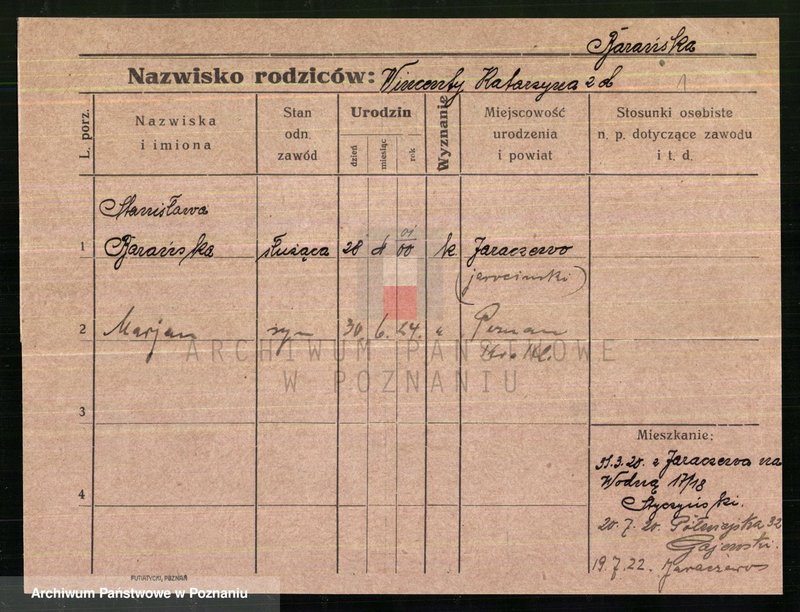 Barańska
Nazwisko rodziców: Vincenty Katarzyna z d
1
L. porz.
Nazwiska
i imiona
Stan
odn.
zawód
Urodzin
dzień
miesiąc
rok
Wyznanie
Miejscowość
urodzenia
i powiat
Stosunki osobiste
n. p. dotyczące zawodu
i t. d.
Stanisława
1 Barańska służąca 28 4 00 k Jaraczewo
01
(jarociński)
2 Marjan syn 30 6. 24. Poznan
ARCHIWUM PAŃSTWOWE
W POZNANIU
3
4
Mieszkanie:
31.3.20. z Jaraczewa na
Wodną 17/18
Styczyński.
20.7.20. Półwiejska 32
Gajewski.
19.7.22. Jaraczewo
PUTIATYCKI, POZNAŃ
Archiwum Państwowe w Poznaniu